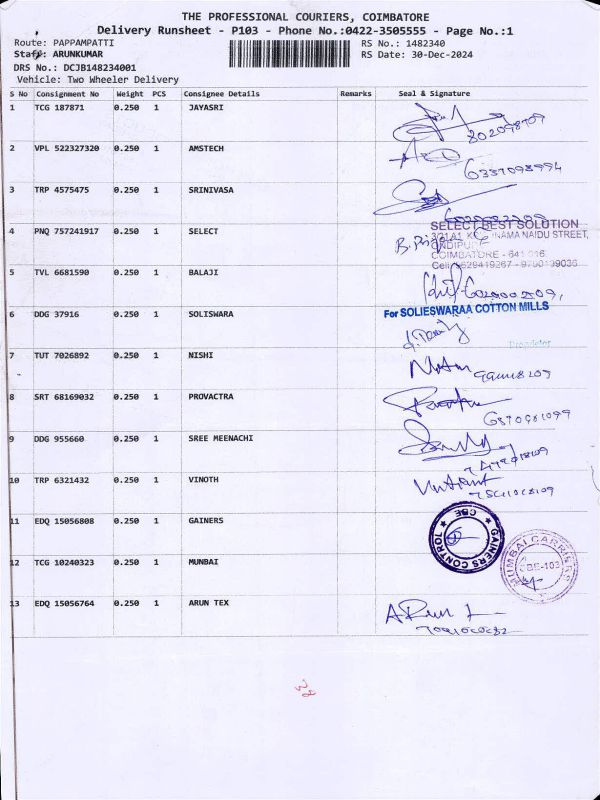 THE PROFESSIONAL COURIERS, COIMBATORE
Delivery Runsheet - P103 - Phone No.:0422-3505555 - Page No.:1
Route: PAPPAMPATTI RS No.: 1482340
Staff: ARUNKUMAR RS Date: 30-Dec-2024
DRS No.: DCJB148234001
Vehicle: Two Wheeler Delivery
S No Consignment No Weight PCS Consignee Details Remarks Seal & Signature
1 TCG 187871 0.250 1 JAYASRI
2 VPL 522327320 0.250 1 AMSTECH
3 TRP 4575475 0.250 1 SRINIVASA
4 PNQ 757241917 0.250 1 SELECT
SELECT BEST SOLUTION
NAMA NAIDU STREET,
COIMBATORE - 641 016
5 TVL 6681590 0.250 1 BALAJI
6 DDG 37916 0.250 1 SOLISWARA For SOLIESWARAA COTTON MILLS
Proprietor
7 TUT 7026892 0.250 1 NISHI
8 SRT 68169032 0.250 1 PROVACTRA
9 DDG 955660 0.250 1 SREE MEENACHI
10 TRP 6321432 0.250 1 VINOTH
11 EDQ 15056808 0.250 1 GAINERS GAINERS CONTROL CBE
12 TCG 10240323 0.250 1 MUNBAI MUMBAI CARRIERS CBE-103
13 EDQ 15056764 0.250 1 ARUN TEX ARun